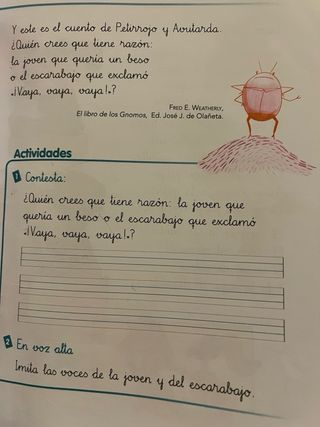 Y este es el cuento de Petirrojo y Avutarda.
¿Quién crees que tiene razón:
la joven que quería un beso
o el escarabajo que exclamó
«¡Vaya, vaya, vaya!»?
FRED E. WEATHERLY,
El libro de los Gnomos, Ed. José J. de Olañeta.
Actividades
1 Contesta:
¿Quién crees que tiene razón: la joven que
quería un beso o el escarabajo que exclamó
«¡Vaya, vaya, vaya!»?
2 En voz alta
Imita las voces de la joven y del escarabajo.